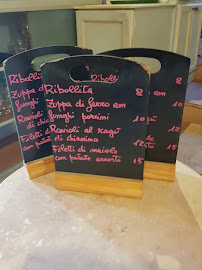 Ribollita 8
Zuppa di farro con
funghi porcini 10
Ravioli al ragù
di chianina 12
Filetti di maiale
con patate arrosto 15
Ribollita
Zuppa di
funghi
Ravioli
di chia
Filetti
con patat
Ribolli
8
10
12
15